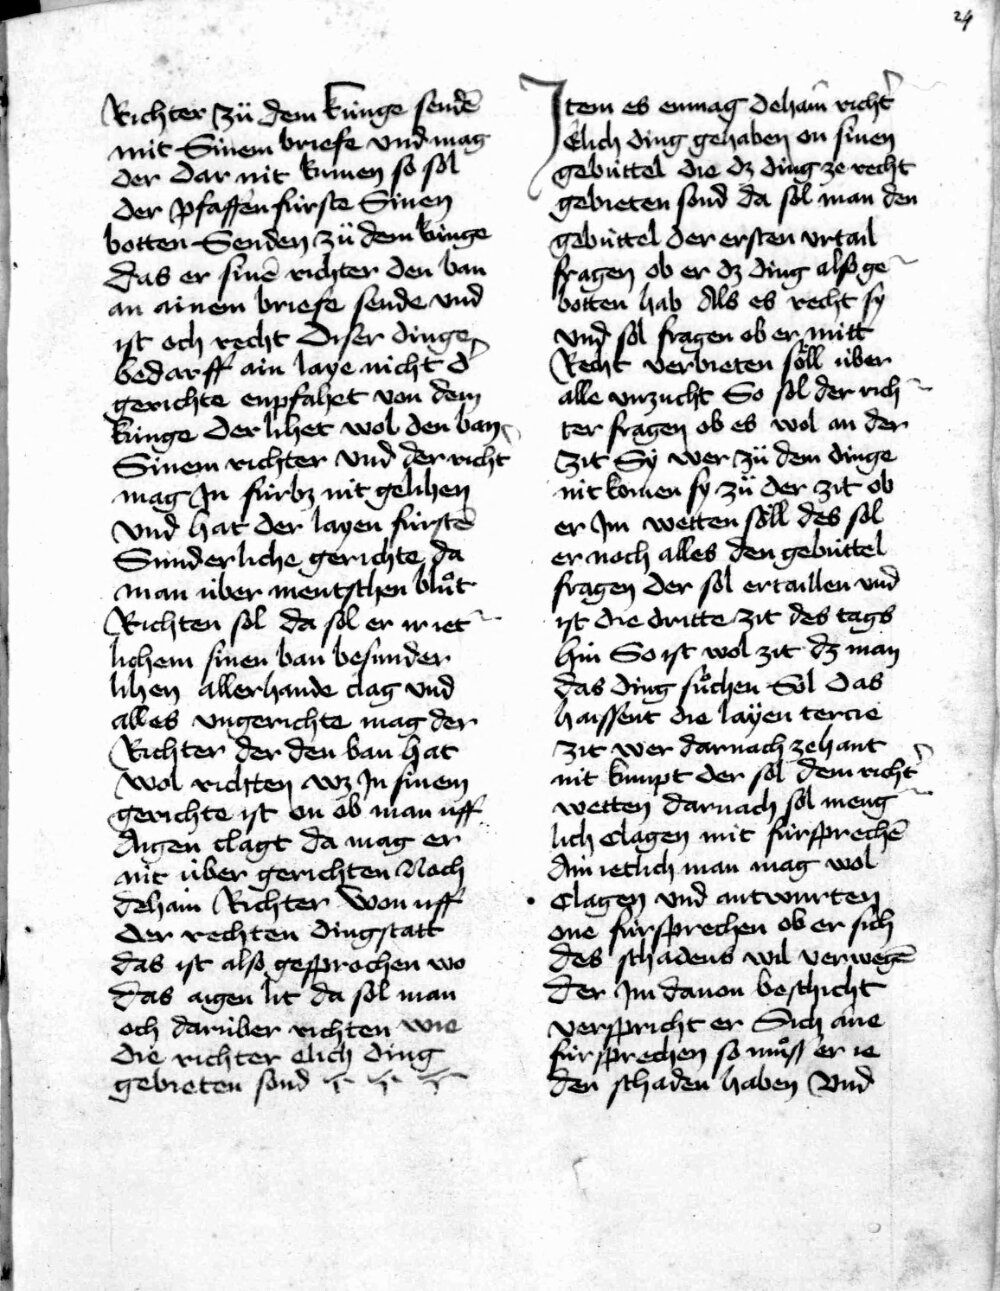 24
Richter zü dem künge sendē
mit Sinem briefe vnd mag
der dar nit kumen so sol
der pfaffen fürste Sinen
botten Senden zü dem künge
das er sinē richter den ban
an ainem briefe sende vnd
ist och recht Diser dinge
bedarff ain laye nicht d̕
gerichte enpfahet von dem
künge der lihet wol den ban
Sinem richter vnd der richt̕
mag In fürbz nit gelihen
vnd hat der layen fürstē
Sunderliche gerichte da
man über mentschen blůt
Richten sol da sol er ir iet
lichem sinen ban besunder
lihen allerhande clag vnd
alles vngerichte mag der
Richter der den ban hat
wol richten wz In sinem
gerichte ist on ob man uff
Aigen clagt da mag er
nit über gerichten Noch
dehain Richter Won uff
der rechten dingstatt
das ist also gesprochen wo
das aigen lit da sol man
och darüber richten wie
die richter elich ding
gebieten sond
Item es enmag dehain̄ richt̕
Elich ding gehaben on sinen
gebüttel die dz ding ze recht
gebieten sond da sol man den
gebüttel der ersten vrtail
fragen ob er dz ding also ge
botten hab Als es recht sy
vnd sol fragen ob er mitt
Recht verbieten söll über
alle vnzucht So sol der rich
ter fragen ob es wol an der
zit Sÿ wer zü dem dinge
nit komen sy zü der zit ob
er Im wetten söll des sol
er noch alles den gebüttel
fragen der sol ertaillen vnd
ist die dritte zit des tags
hin So ist wol zit dz man
das ding sůchen Sol das
haissent die laÿen tercie
zit wer darnach zehant
nit kumpt der sol dem richt̕
wetten darnach sol meng
lich clagen mit fürsprechē
Ain ietlich man mag wol
clagen vnd antwurten
one fürsprechen ob er sich
des schadens wil verwegē
der Im dauon beschicht
verspricht er Sich ane
fürsprechen so můß er ie
den schaden haben Vnd